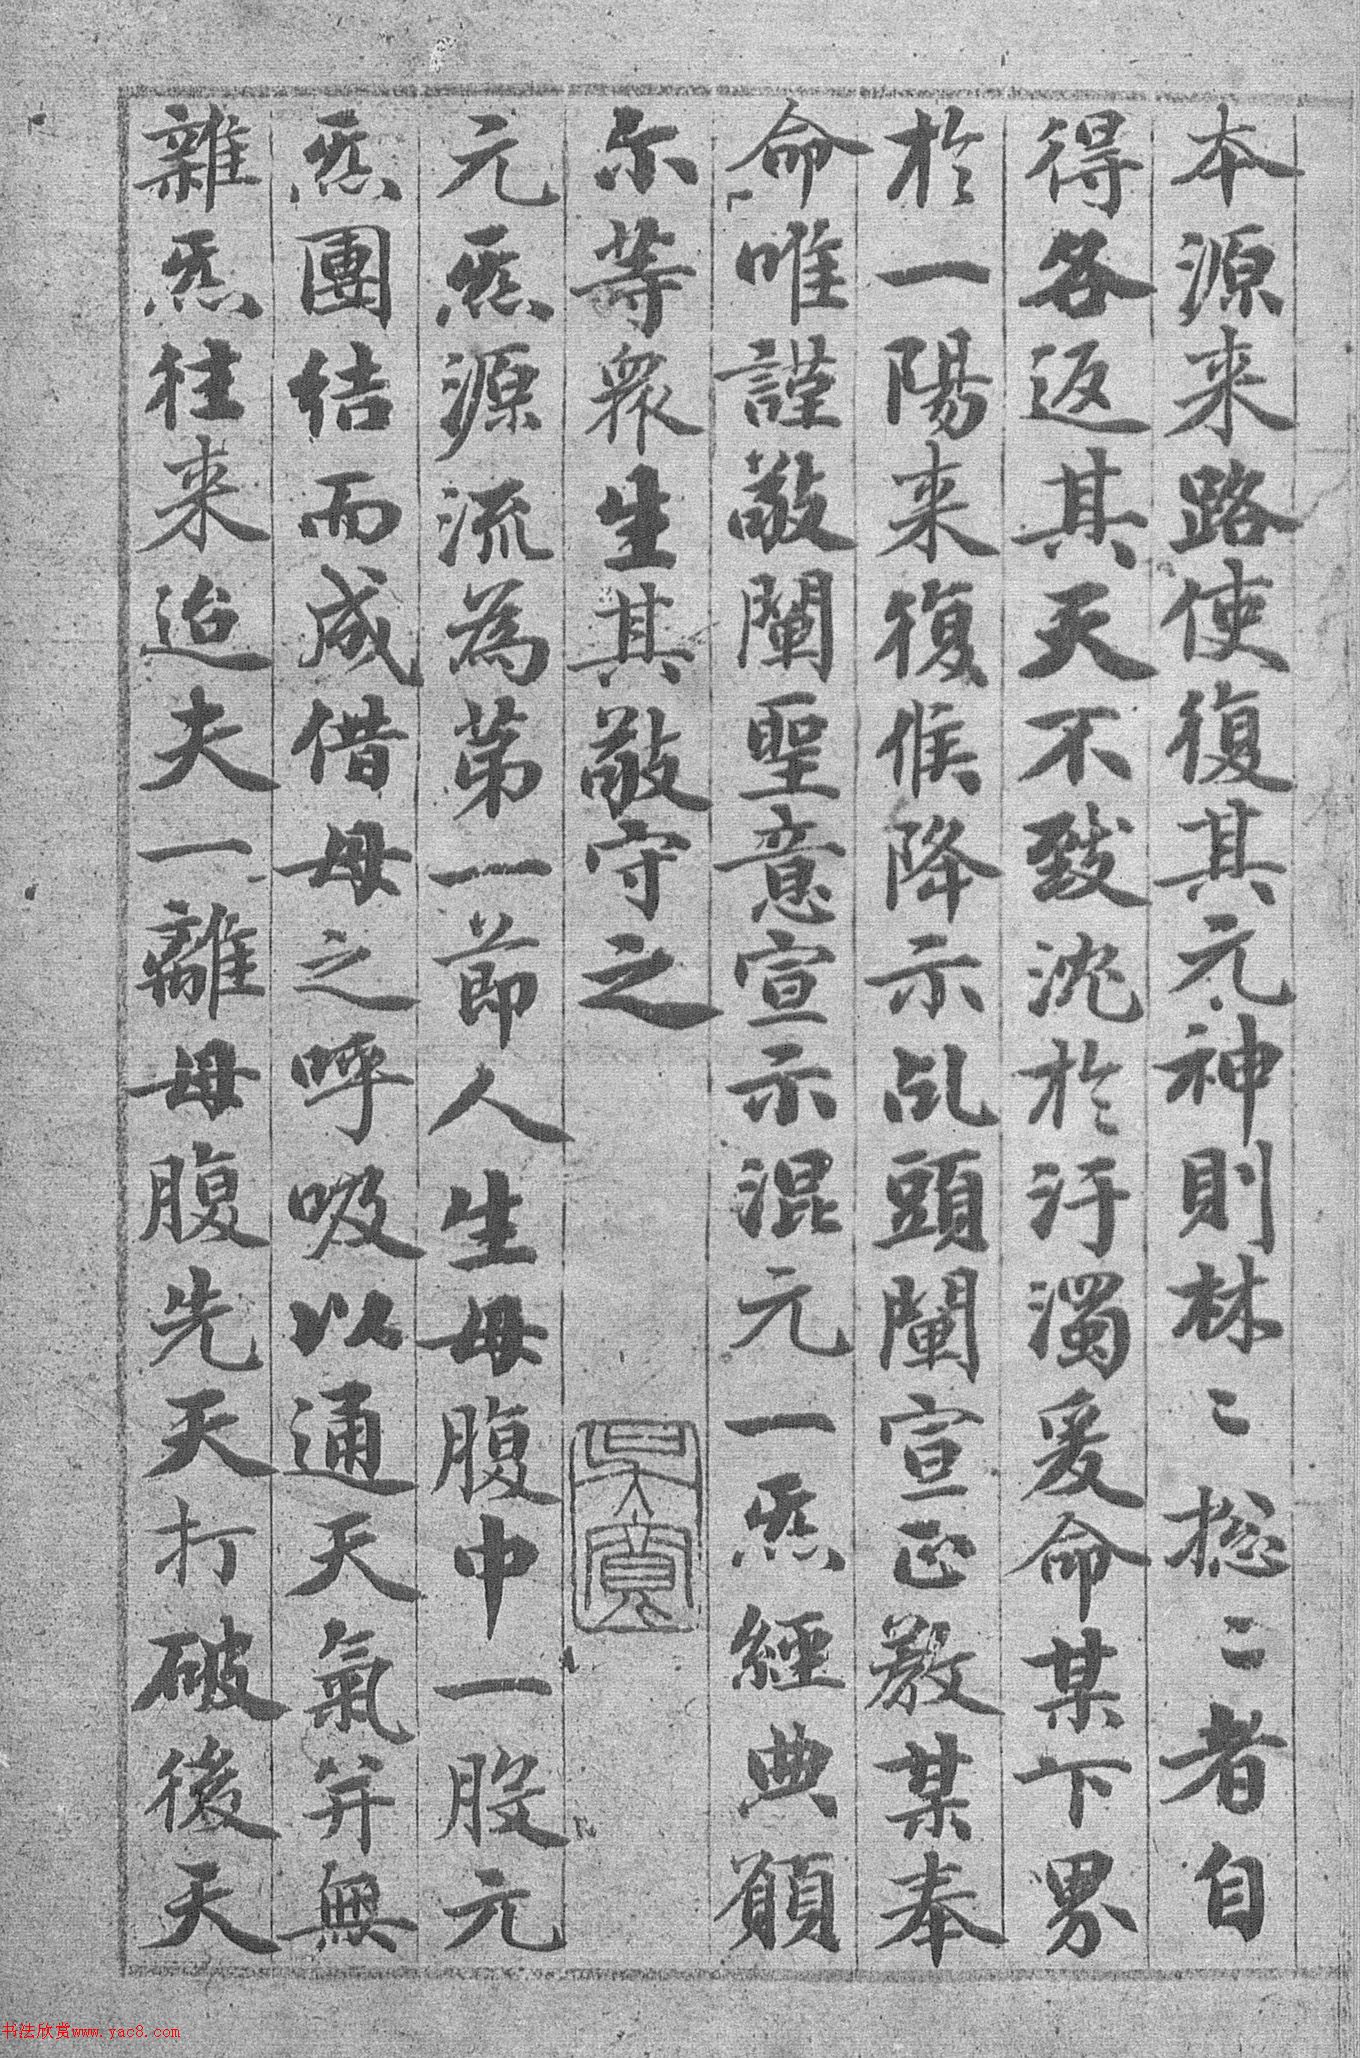 本源来路使復其元神則林〻総〻者自
得各返其天不致沈於汙濁爰命某下界
於一陽来復候降示乩頭闡宣正教某奉
命唯謹敬闡聖意宣示混元一炁經典願
尓等衆生其敬守之
元炁源流為第一節人生母腹中一股元
炁團结而成借母之呼吸以通天氣并無
雜炁往来迨夫一離母腹先天打破後天
书法欣赏www.yac8.com